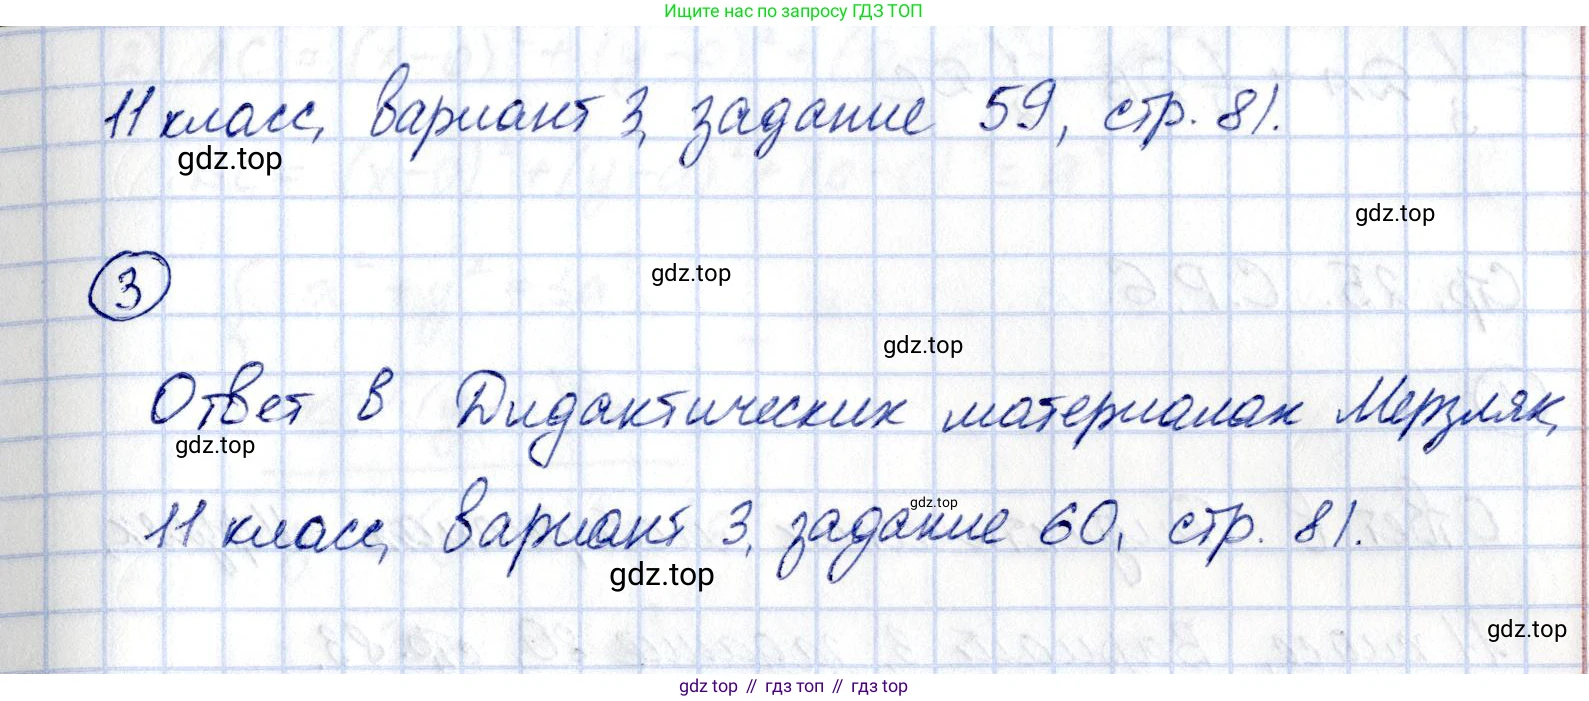 Ищите нас по запросу ГДЗ ТОП
11 класс, вариант 3, задание 59, стр. 81.
gdz.top
gdz.top
gdz.top
3
gdz.top
Ответ в Дидактических материалах Мерзляк,
gdz.top
gdz.top
11 класс, вариант 3, задание 60, стр. 81.
gdz.top
gdz.top
gdz top // гдз топ // гдз top